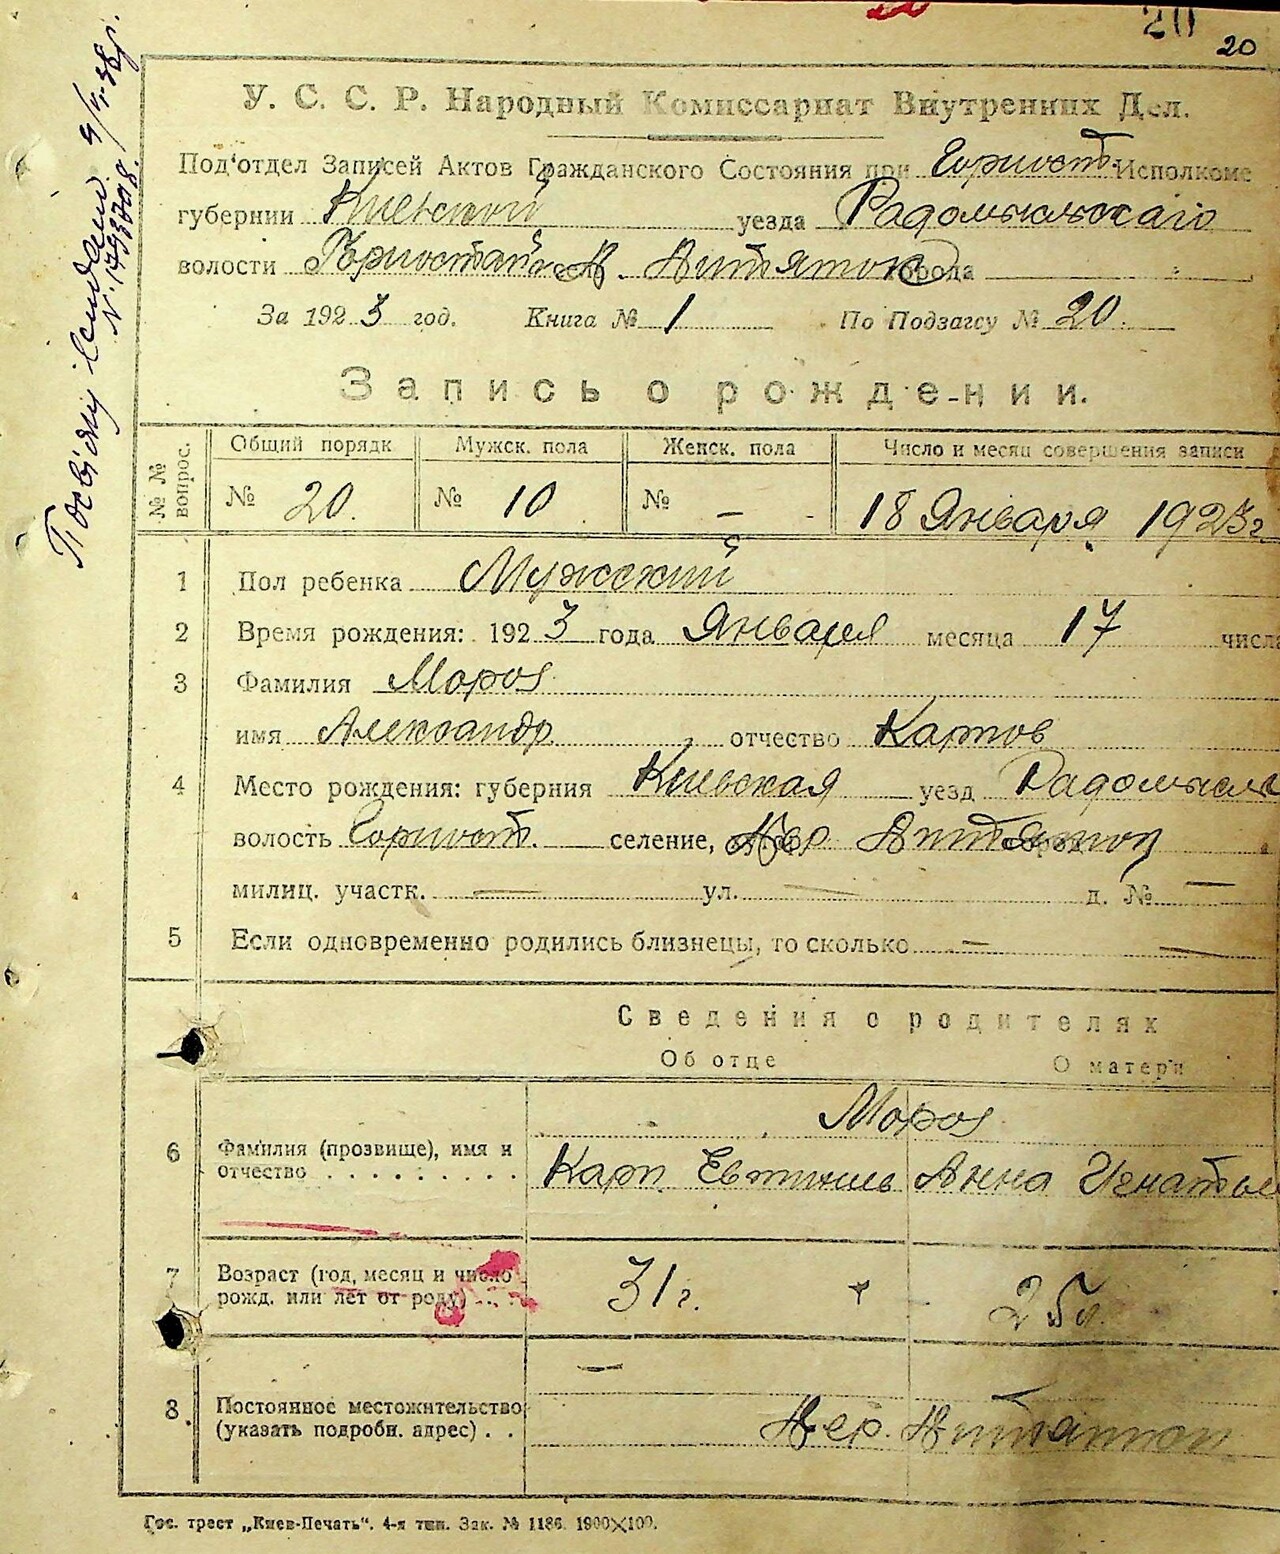 20
20
Посвідку
4/V-38р.
У. С. С. Р. Народный Комиссариат Внутренних Дел.
Под'отдел Записей Актов Гражданского Состояния при Горност. Исполкоме
губернии Киевской уезда Радомысльского
волости Горностайп города
За 1923 год. Книга № 1 По Подзагсу № 20.
Запись о рождении.
№№ вопрос. Общий порядк Мужск. пола Женск. пола Число и месяц совершения записи
№ 20. № 10 № — 18 Января 1923г.
1 Пол ребенка Мужский
2 Время рождения: 1923 года Января месяца 17 числа
3 Фамилия Мороз
имя Александр отчество Карпов
4 Место рождения: губерния Киевская уезд Радомысль
волость Горност. селение, дер.
милиц. участк. — ул. — д. № —
5 Если одновременно родились близнецы, то сколько — —
Сведения о родителях
Об отце О матери
Мороз
6 Фамилия (прозвище), имя и
отчество . . . . . . . . . Карп Евтихиев Анна Игнатьев
7 Возраст (год, месяц и число
рожд. или лет от роду) . . . 31 г. 25 л.
—
8 Постоянное местожительство
(указать подробн. адрес) . . дер.
Гос. трест „Киев-Печать“. 4-я тип. Зак. № 1186. 1900×100.